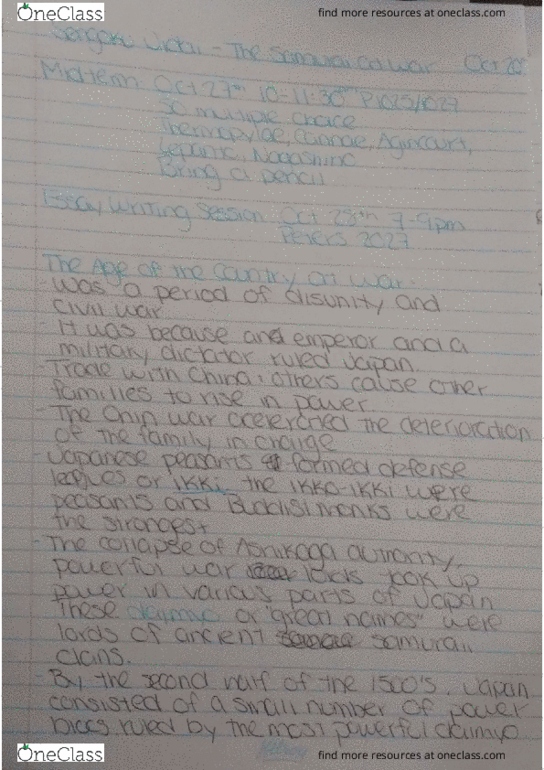 OneClass
find more resources at oneclass.com
Sengoku Jidai - The Samurai at war Oct 20
Midterm Oct 27th 10-11:30 P1025/1027
50 multiple choice
Thermopylae, Cannae, Agincourt,
Lepanto, Nagashino
Bring a pencil
Essay Writing Session Oct 28th 7-9pm
Peters 2027
The Age of the Country at War.
- Was a period of disunity and
civil war
- It was because and emperor and a
military dictator ruled Japan.
- Trade with China & others cause other
families to rise in power
- The Onin war acelerated the deterioration
of the family in charge
- Japanese peasants formed defense
leagues or ikki. the ikko-ikki were
peasants and Buddist monks were
the strongest
- The collapse of Ashikaga authority,
powerful war lords took up
power in various parts of Japan
These daimyo or "great names" were
lords of ancient samurai
clans.
- By the second half of the 1500's, Japan
consisted of a small number of power
blocs ruled by the most powerful daimyo
OneClass
find more resources at oneclass.com